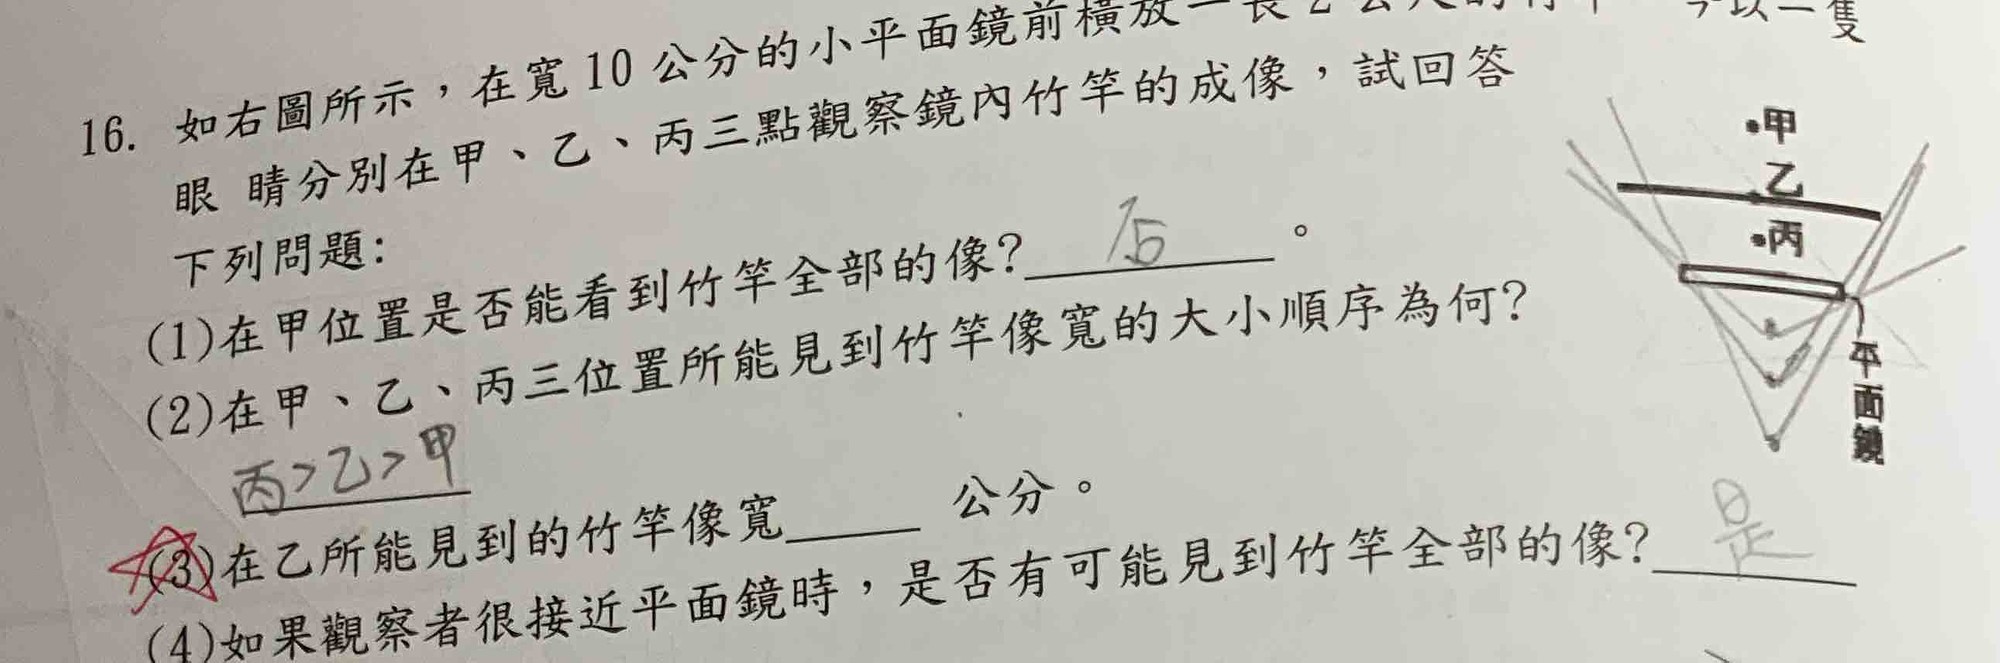 16. 如右圖所示,在寬 10 公分的小平面鏡前橫放一長 2 公尺的竹竿 今以一隻
眼 睛分別在甲、乙、丙三點觀察鏡內竹竿的成像,試回答
下列問題:
(1)在甲位置是否能看到竹竿全部的像? 否 。
(2)在甲、乙、丙三位置所能見到竹竿像寬的大小順序為何?
丙>乙>甲
(3)在乙所能見到的竹竿像寬____ 公分。
(4)如果觀察者很接近平面鏡時,是否有可能見到竹竿全部的像? 是
甲
乙
丙
平面鏡